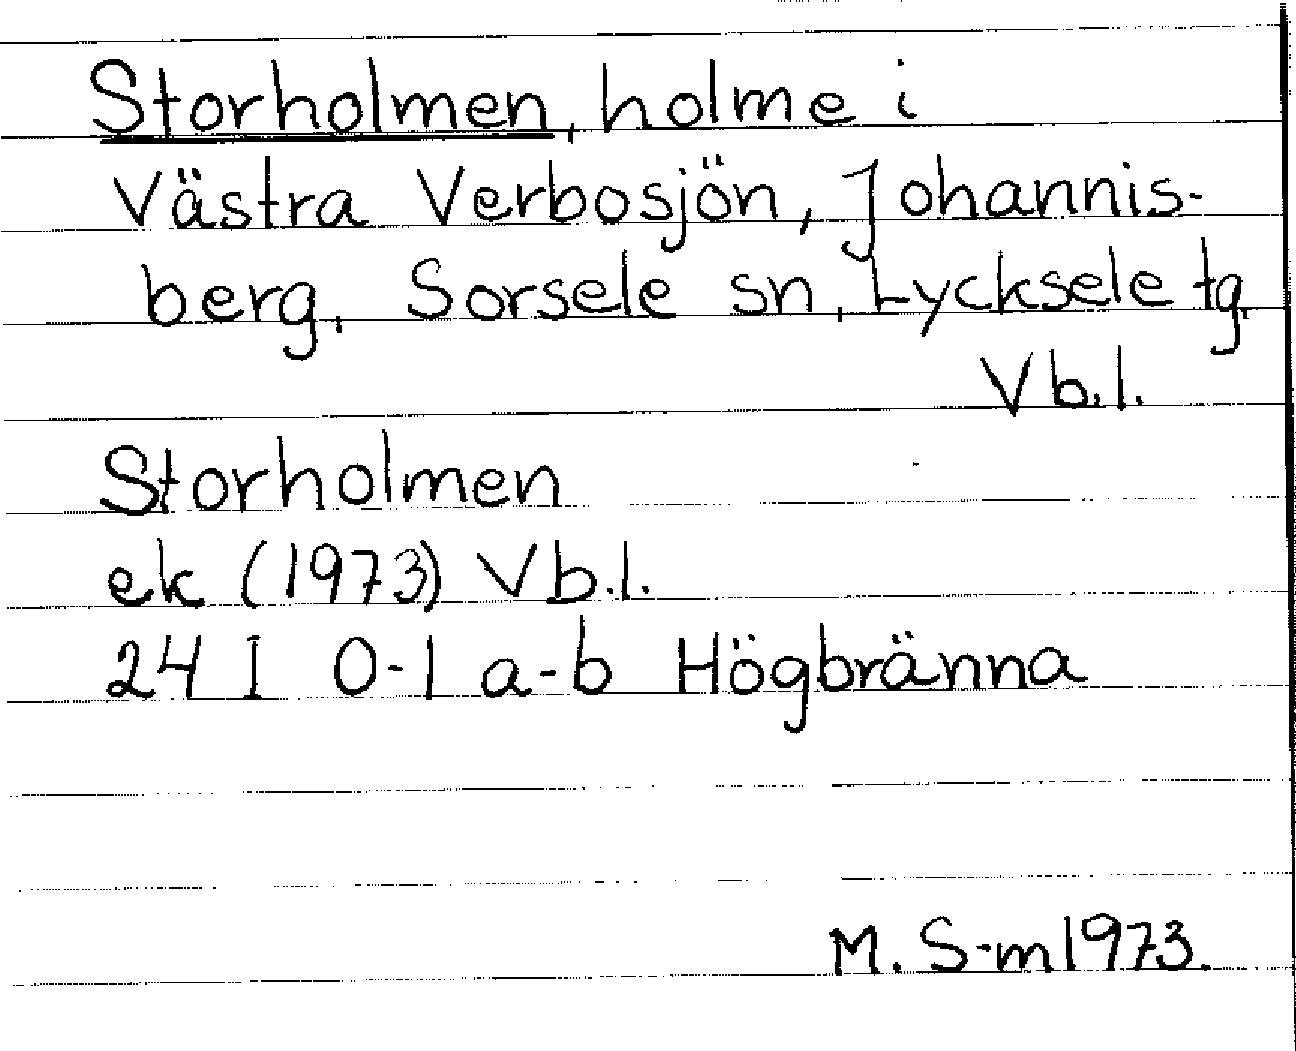 Storholmen, holme i
Västra Verbosjön, Johannis-
berg, Sorsele sn, Lycksele tg,
Vb.l.
Storholmen
ek (1973) Vb.l.
24 I 0-1 a-b Högbränna
M. S-m 1973.